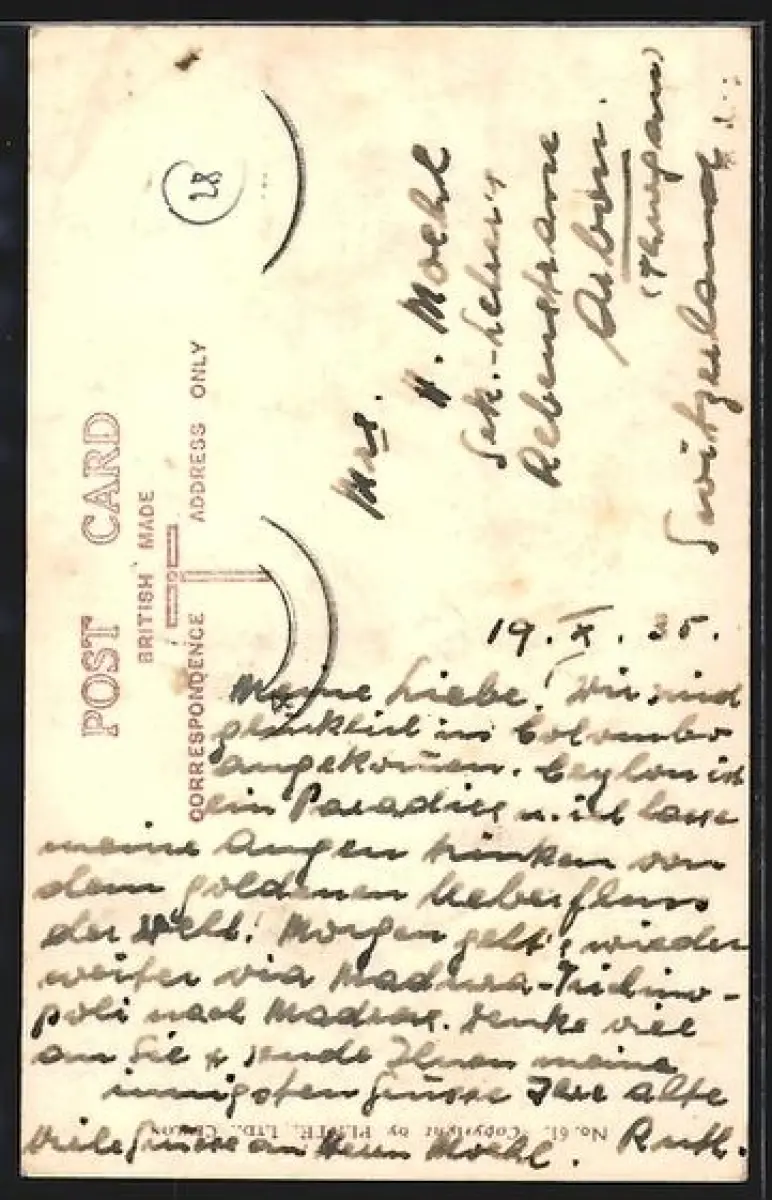 POST CARD
BRITISH MADE
CORRESPONDENCE
ADDRESS ONLY
28
Mrs.
H. Moehl
Sek.-Lehrer's
Rebenstrasse
Arbon.
(Thurgau)
Switzerland
19. X. 35.
Meine Liebe! Wir sind
glücklich in Colombo
angekom̄en. Ceylon ist
ein Paradies u. ich lasse
meine Augen trinken von
dem goldenen Ueberfluss
der Welt! Morgen geht's wieder
weiter via Madura-Trichino-
poli nach Madras. Denke viel
an Sie & sende Ihnen meine
innigsten Grüsse Ihre alte
Ruth.
Viele Grüsse an Herrn Moehl.
No. 61. Copyright by PLATÉ, LTD., CEYLON